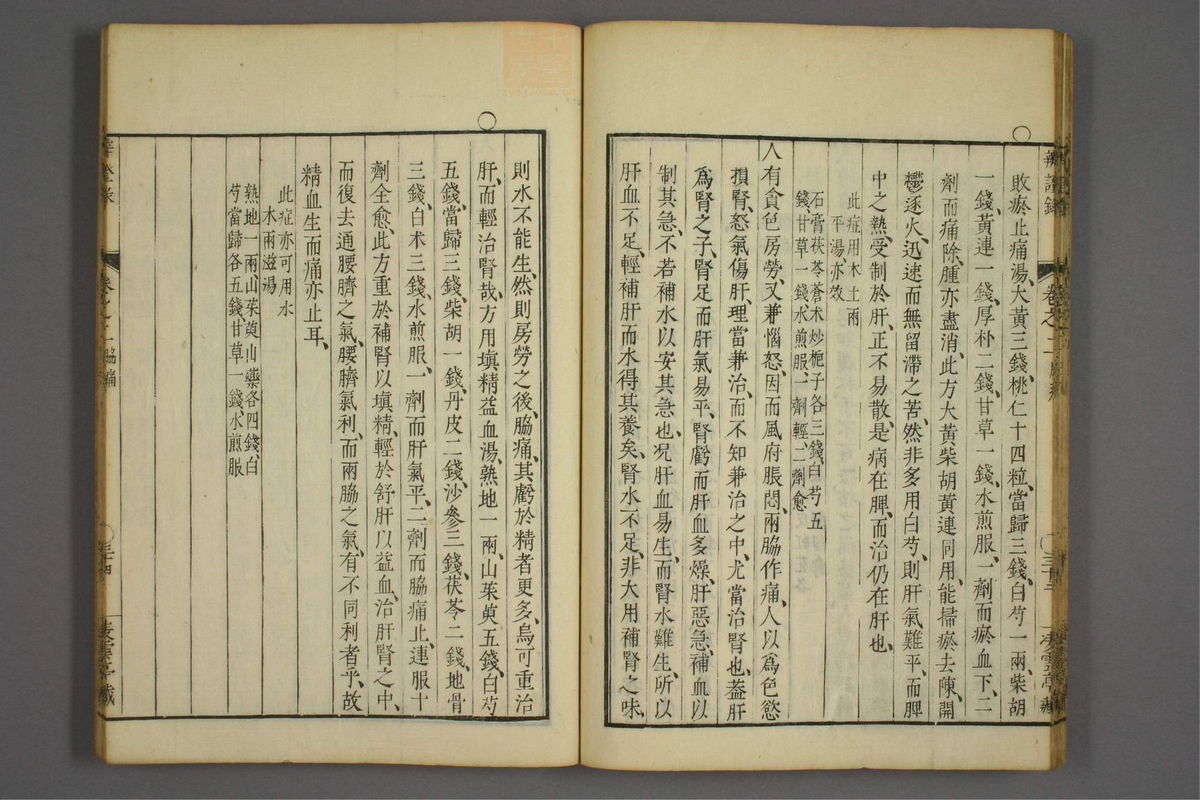 敗瘀止痛湯、大黃三錢、桃仁十四粒、當歸三錢、白芍一兩、柴胡
一錢、黃連一錢、厚朴二錢、甘草一錢、水煎服、一劑而瘀血下、二
劑而痛除、腫亦盡消、此方大黃柴胡黃連同用、能掃瘀去陳、開
鬱逐火、迅速而無留滯之苦、然非多用白芍、則肝氣難平、而脾
中之熱、受制於肝、正不易散、是病在脾、而治仍在肝也、
此症用木土兩
平湯亦效
石膏茯苓蒼朮炒梔子各三錢、白芍五
錢、甘草一錢、水煎服、一劑輕、二劑愈
人有貪色房勞、又兼惱怒、因而風府脹悶、兩脇作痛、人以爲色慾
損腎、怒氣傷肝、理當兼治、而不知兼治之中、尤當治腎也、葢肝
爲腎之子、腎足而肝氣易平、腎虧而肝血多燥、肝惡急、補血以
制其急、不若補水以安其急也、况肝血易生、而腎水難生、所以
肝血不足、輕補肝而水得其養矣、腎水不足、非大用補腎之味、
辨證錄
卷之二
凌雲亭藏
則水不能生、然則房勞之後、脇痛、其虧於精者更多、烏可重治
肝、而輕治腎哉、方用塡精益血湯、熟地一兩、山茱萸五錢、白芍
五錢、當歸三錢、柴胡一錢、丹皮二錢、沙參三錢、茯苓二錢、地骨
三錢、白朮三錢、水煎服、一劑而肝氣平、二劑而脇痛止、連服十
劑全愈、此方重於補腎以塡精、輕於舒肝以益血、治肝腎之中、
而復去通腰臍之氣、腰臍氣利、而兩脇之氣、有不同利者乎、故
精血生而痛亦止耳、
此症亦可用水
木兩滋湯
熟地一兩、山茱萸山藥各四錢、白
芍當歸各五錢、甘草一錢、水煎服
卷之二 脇痛
三十四